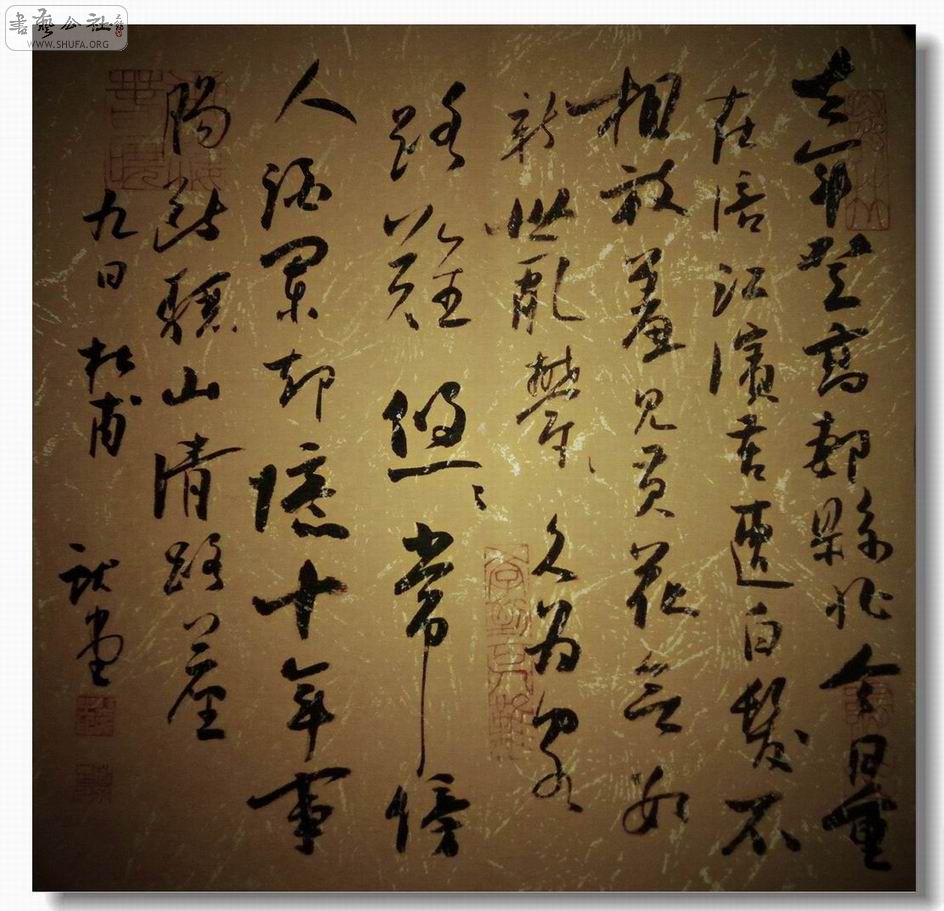 書藝公社
WWW.SHUFA.ORG
去年登高郪縣北今日重
在涪江濱苦遭白髮不
相放羞見黃花無數
新世亂鬱々久為客
路難悠々常傍
人酒闌却憶十年事
腸斷驪山清路塵
九日 杜甫